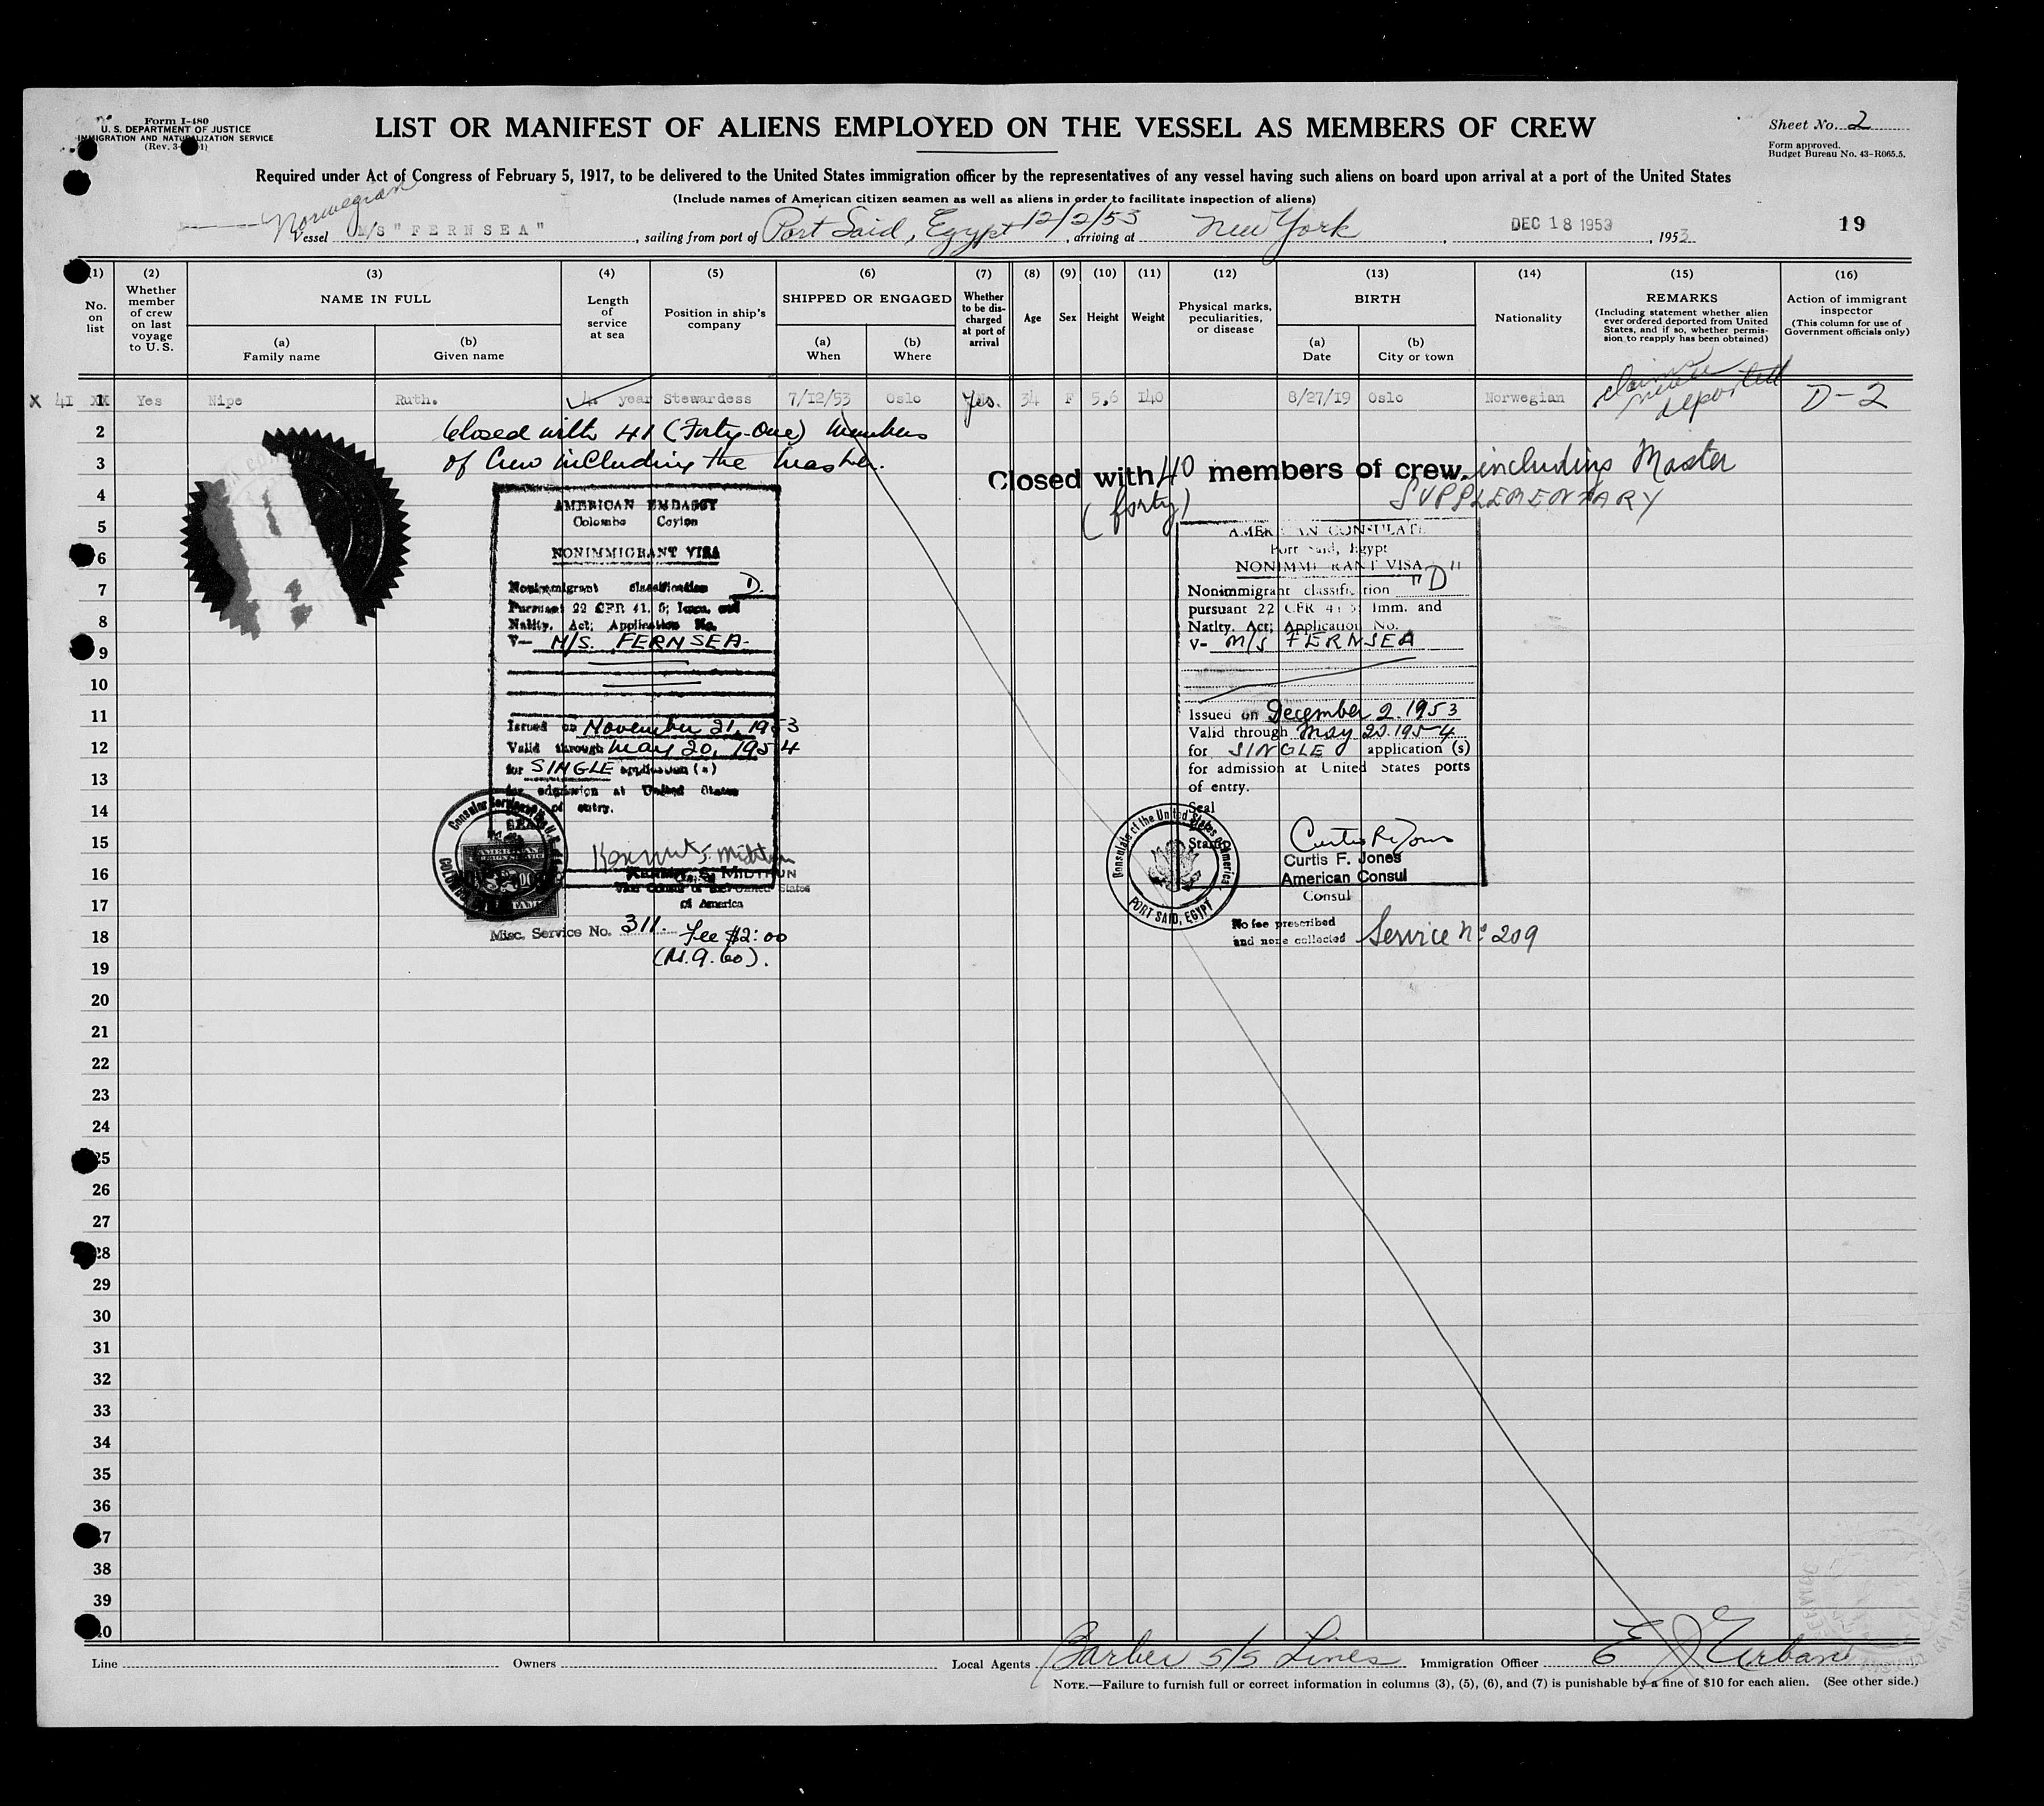 Form I-480
U. S. DEPARTMENT OF JUSTICE
IMMIGRATION AND NATURALIZATION SERVICE
(Rev. 3-
LIST OR MANIFEST OF ALIENS EMPLOYED ON THE VESSEL AS MEMBERS OF CREW
Sheet No. 2
Form approved.
Budget Bureau No. 43-R065.5.
Required under Act of Congress of February 5, 1917, to be delivered to the United States immigration officer by the representatives of any vessel having such aliens on board upon arrival at a port of the United States
(Include names of American citizen seamen as well as aliens in order to facilitate inspection of aliens)
Norwegian
Vessel M/S "FERNSEA", sailing from port of Port Said, Egypt 12/2/53, arriving at New York, DEC 18 1953, 1953
19
(1) (2) (3) (4) (5) (6) (7) (8) (9) (10) (11) (12) (13) (14) (15) (16)
No. on list
Whether member of crew on last voyage to U. S.
NAME IN FULL
(a) Family name
(b) Given name
Length of service at sea
Position in ship's company
SHIPPED OR ENGAGED
(a) When
(b) Where
Whether to be discharged at port of arrival
Age
Sex
Height
Weight
Physical marks, peculiarities, or disease
BIRTH
(a) Date
(b) City or town
Nationality
REMARKS
(Including statement whether alien ever ordered deported from United States, and if so, whether permission to reapply has been obtained)
Action of immigrant inspector
(This column for use of Government officials only)
X 41 XX 1 Yes Nipe Ruth. 4. year Stewardess 7/12/53 Oslo Yes. 34 F 5,6 140 8/27/19 Oslo Norwegian claims never deported D-2
2 Closed with 41 (Forty-One) Members
3 of Crew including the Master.
Closed with 40 members of crew. including Master
(forty) SUPPLEMENTARY
4
5
6
7
8
9
10
11
12
13
14
15
16
17
18
19
20
21
22
23
24
25
26
27
28
29
30
31
32
33
34
35
36
37
38
39
40
AMERICAN EMBASSY
Colombo Ceylon
NONIMMIGRANT VISA
Nonimmigrant classification D.
Pursuant 22 CFR 41. 5; Imm. and
Natlty. Act; Application No.
V— M/S. FERNSEA-
Issued on November 21, 1953
Valid through May 20, 1954
for SINGLE application (s)
for admission at United States
of entry.
SEAL
Kermit S. Midthun
KERMIT S. MIDTHUN
Vice Consul of the United States
of America
Misc. Service No. 311. Fee $2:00
(Rs. 9. 60).
AMERICAN CONSULATE
Port Said, Egypt
NONIMMIGRANT VISA
Nonimmigrant classification "D"
pursuant 22 CFR 41 5; Imm. and
Natlty. Act; Application No.
V- M/S FERNSEA
Issued on December 2. 1953
Valid through May 20. 1954
for SINGLE application (s)
for admission at United States ports
of entry.
Seal
Stamp
Consulate of the United States of America
PORT SAID, EGYPT
Curtis F. Jones
Curtis F. Jones
American Consul
Consul
No fee prescribed
and none collected
Service No 209
Line
Owners
Local Agents Barber S/S Lines
Immigration Officer E J Urbani
NOTE.—Failure to furnish full or correct information in columns (3), (5), (6), and (7) is punishable by a fine of $10 for each alien. (See other side.)